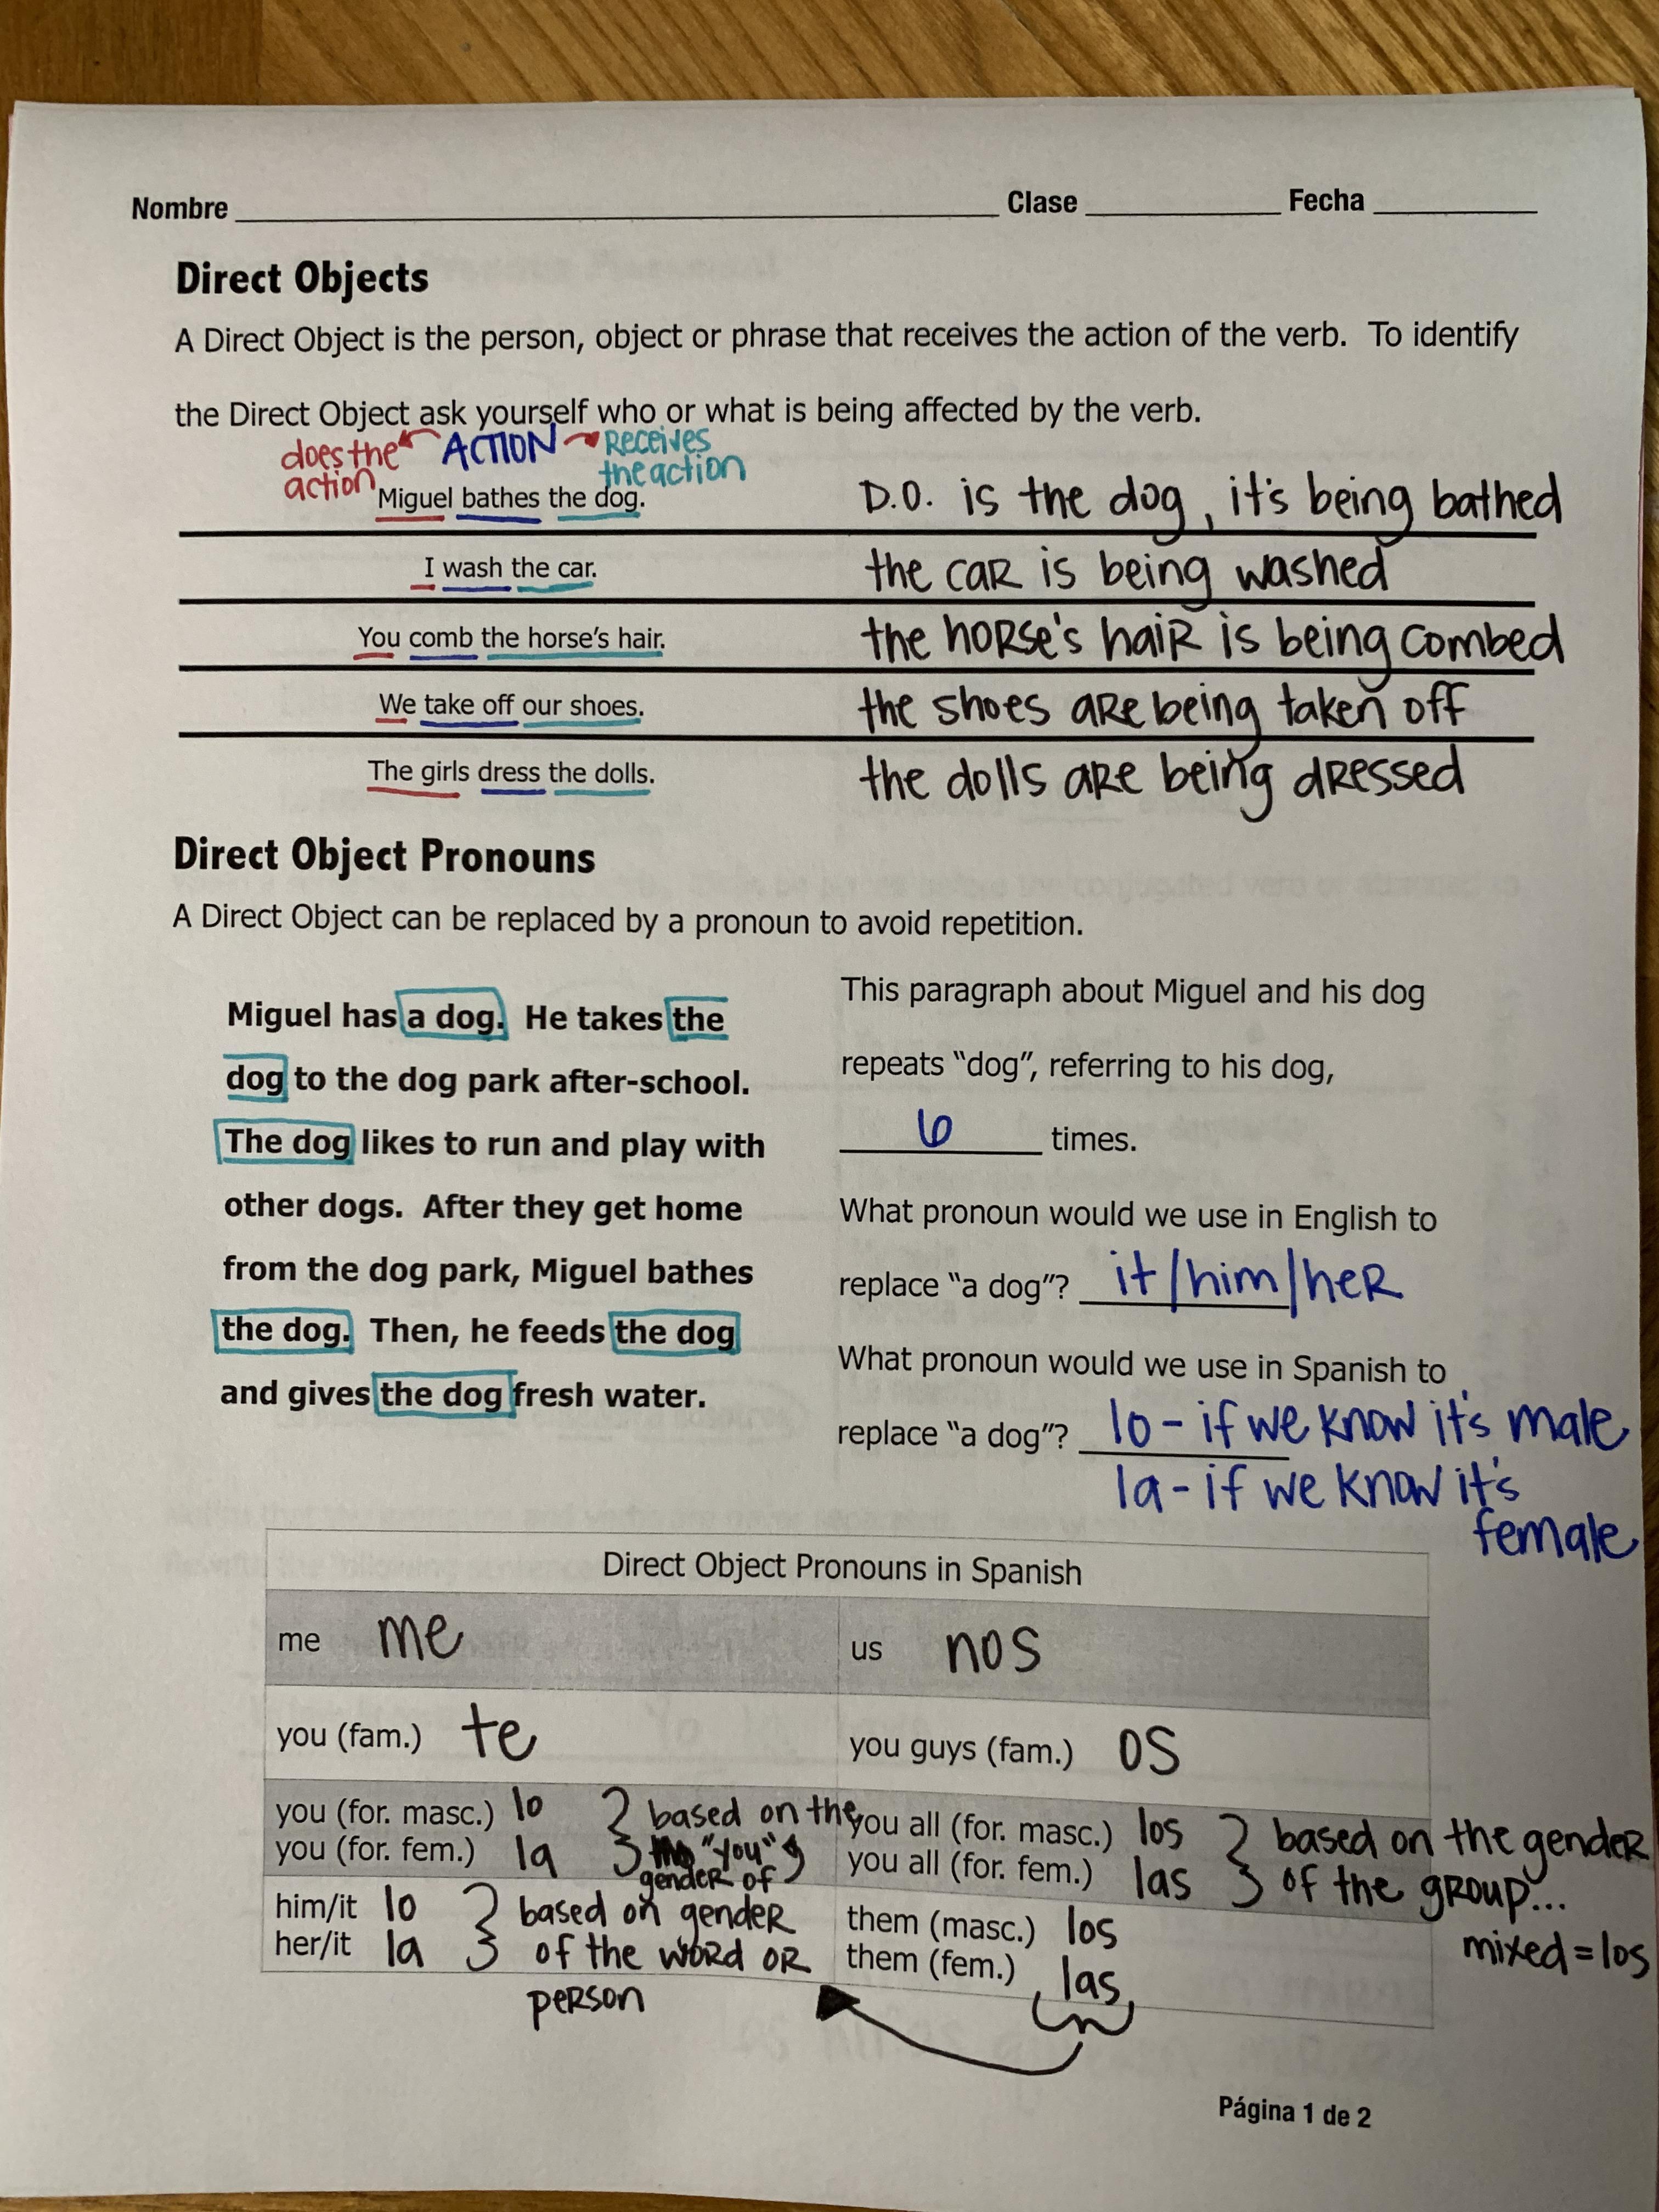 Nombre Clase Fecha
Direct Objects
A Direct Object is the person, object or phrase that receives the action of the verb. To identify
the Direct Object ask yourself who or what is being affected by the verb.
does the action ACTION Receives the action
Miguel bathes the dog. D.O. is the dog, it's being bathed
I wash the car. the car is being washed
You comb the horse's hair. the horse's hair is being combed
We take off our shoes. the shoes are being taken off
The girls dress the dolls. the dolls are being dressed
Direct Object Pronouns
A Direct Object can be replaced by a pronoun to avoid repetition.
Miguel has a dog. He takes the
dog to the dog park after-school.
The dog likes to run and play with
other dogs. After they get home
from the dog park, Miguel bathes
the dog. Then, he feeds the dog
and gives the dog fresh water.
This paragraph about Miguel and his dog
repeats “dog”, referring to his dog,
6 times.
What pronoun would we use in English to
replace “a dog”? it/him/her
What pronoun would we use in Spanish to
replace “a dog”? lo - if we know it's male
la - if we know it's
female
Direct Object Pronouns in Spanish
me me us nos
you (fam.) te you guys (fam.) os
you (for. masc.) lo } based on the
you (for. fem.) la "you"
gender of
you all (for. masc.) los } based on the gender
you all (for. fem.) las of the group...
mixed = los
him/it lo } based on gender
her/it la of the word or
person
them (masc.) los
them (fem.) las
Página 1 de 2